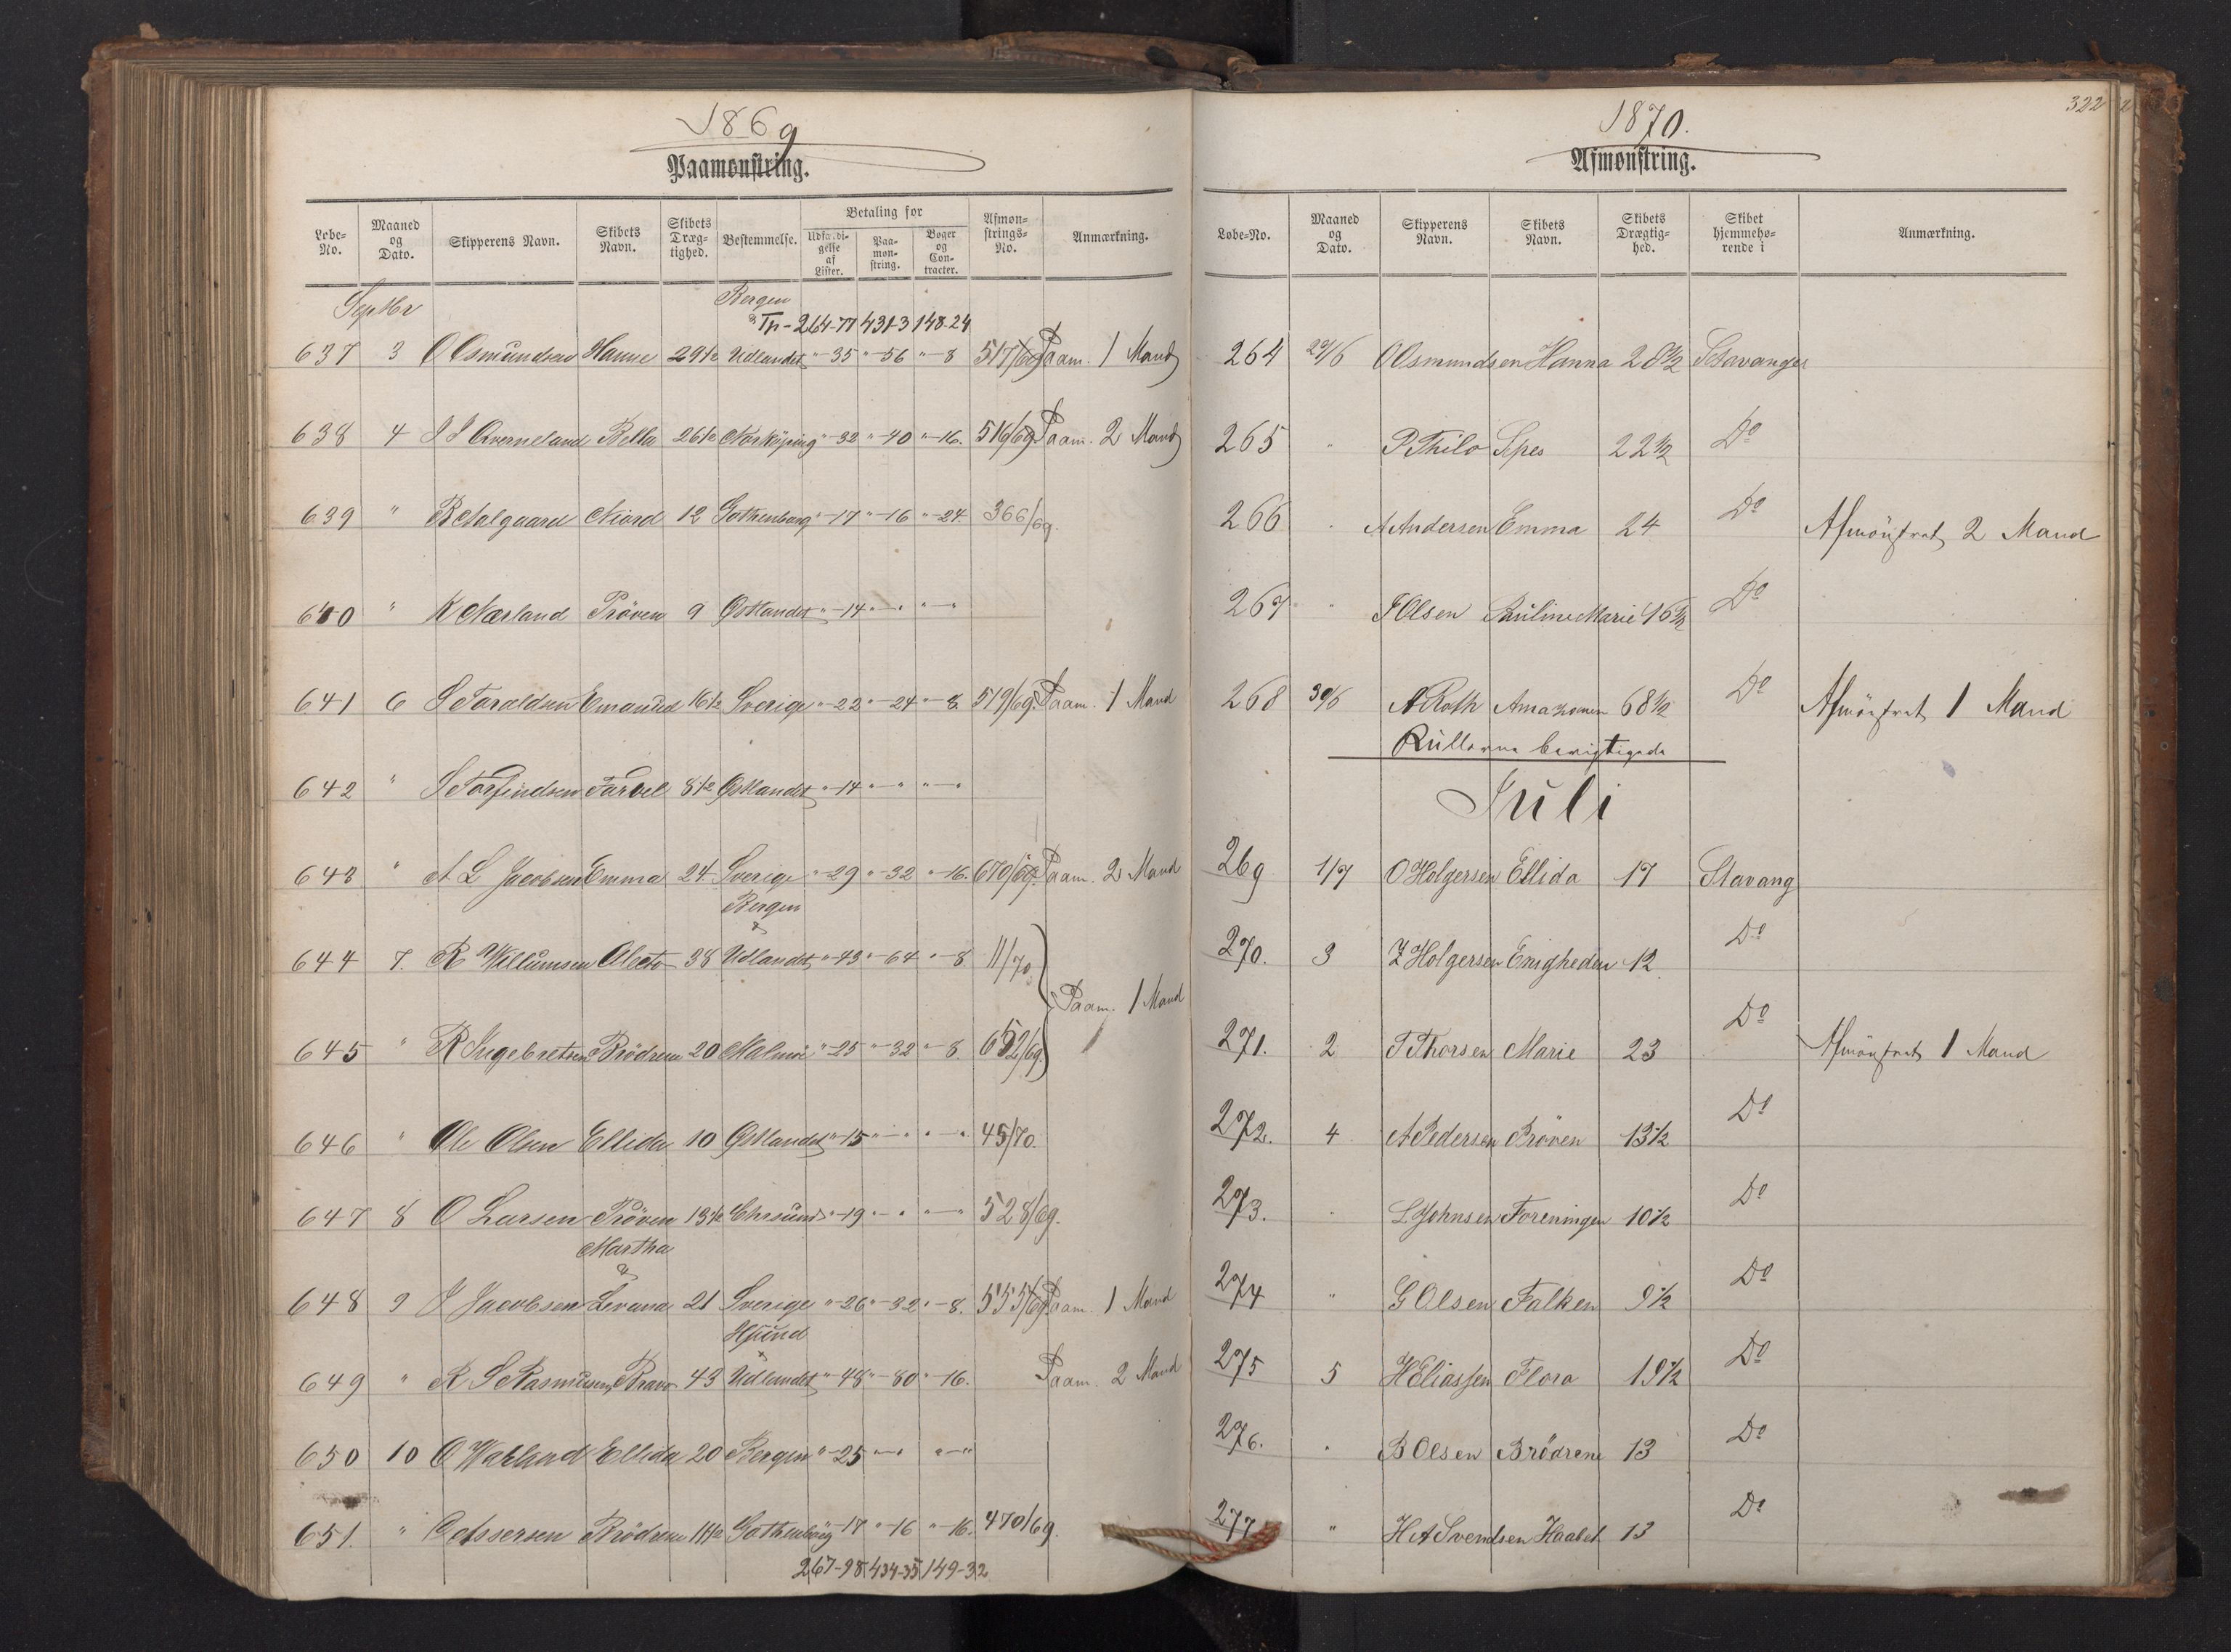 1869
Paamønstring.
Løbe-No. Maaned og Dato. Skipperens Navn. Skibets Navn. Skibets Dræg-tighed. Bestemmelse. Betaling for Udfærdi-gelse af Lister. Paa-møn-string. Bøger og Con-tracter. Afmøn-strings-No. Anmærkning.
Septbr Bergen
& Tr- 264-77 431-3 148-24
637 3 O Osmundsen Hanne 29 1/2 Udlandet " - 35 " - 56 " - 8 517/69 Paam. 1 Mand
638 4 Qverneland Bella 26 1/2 Norkjøping " - 32 " - 40 " - 16. 516/69 Paam. 2 Mand
639 " B Aalgaard Niord 12 Gothenborg " - 17 " - 16 " - 24 366/69.
640 " K Nærland Pröven 9 Östlandet " - 14 " - " " - "
641 6 S Taraldsen Emanuel 16 1/2 Sverige " - 22 " - 24 " - 8. 519/69. Paam. 1 Mand
642 " S Torfindsen Farvel 8 1/2 Östlandet " - 14 " - " " - "
643 " A L Jacobsen Emma 24 Sverige " - 29 " - 32 " - 16. 670/69. Paam. 2 Mand
Bergen
&
644 7. R Willumsen Alecto 38 Udlandet " - 43 " - 64 " - 8 11/70.
Paam. 1 Mand
645 " R Ingebretsen Brödrene 20 Malmö " - 25 " - 32 " - 8. 652/69.
646 " Ole Olsen Ellida 10 Östlandet " - 15 " - " " - " 45/70.
647 8 O Larsen Pröven 13 1/2 Chrsund " - 19 " - " " - " 528/69.
Martha
&
648 9 J Jacobsen Levana 21 Sverige " - 26 " - 32 " - 8. 555/69 Paam. 1 Mand
&
649 " K S Rasmussen Bravo 43 Udlandet " - 48 " - 80 " - 16. Paam. 2 Mand
650 10 O Ellida 20 Bergen " - 25 " - " " - "
651. " O Assersen Brödrene 11 1/2 Gothenborg - 17 " - 16 " - 16. 470/69.
267-98 434-35 149-32
322
1870.
Afmønstring.
Løbe-No. Maaned og Dato. Skipperens Navn. Skibets Navn. Skibets Drægtig-hed. Skibet hjemmehø-rende i Anmærkning.
264 29/6 O Osmundsen Hanna 28 1/2 Stavanger
265 " P Thilo Spes 22 1/2 Do
266 " A Andersen Emma 24 Do Afmönstret 2 Mand
267 " J Olsen Pauline Marie 16 1/2 Do
268 30/6 A Roth Amazonen 68 1/2 Do Afmönstret 1 Mand
Rullerne berigtigede
Juli
269 1/7 O Holgersen Ellida 17 Stavang
270. 3 Z Holgersen Enigheden 12 Do
271. 2 T Thorsen Marie 23 Do Afmönstret 1 Mand
272. 4 A Pedersen Pröven 13 1/2 Do
273. " L Johnsen Foreningen 10 1/2 Do
274 " G Olsen Falken 9 1/2 Do
275 5 H Eliassen Flora 19 1/2 Do
276. " B Olsen Brödrene 13 Do
277 " H A Svendsen Haabet 13 Do